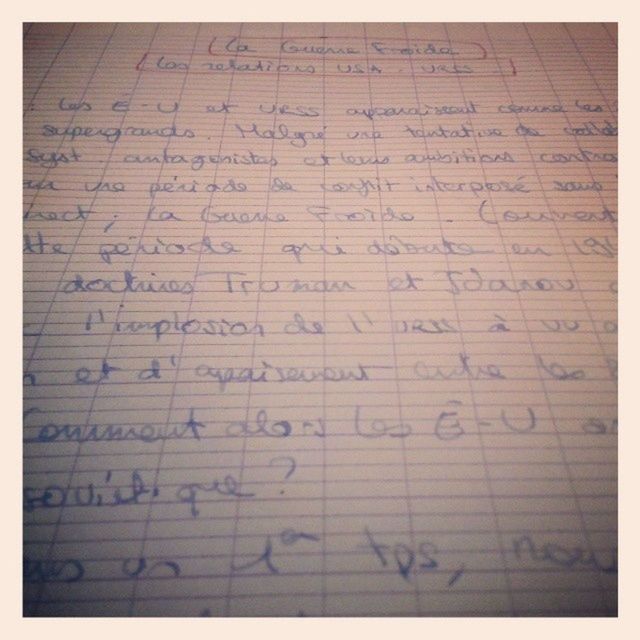 La Guerre Froide
Les relations USA - URSS.
: Les É-U et URSS apparaissent comme les
supergrands. Malgré une tentative de
syst. antagonistes et leurs ambitions contra
une période de conflit interposé sans
rect ; La Guerre Froide.
tte période qui débute en 19
doctrines Truman et Jdanov
l'implosion de l'URSS à vu
et d'apaisement entre les
Comment alors les É-U
soviétique?
un 1er tps, nou